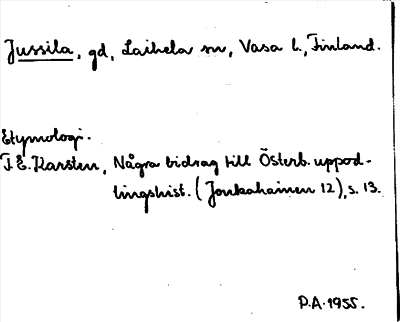 Jussila, gd, Laihela sn, Vasa l., Finland.
Etymologi.
T.E. Karsten, Några bidrag till Österb. uppod-
lingshist. (Joukahainen 12), s. 13.
P.A. 1955.